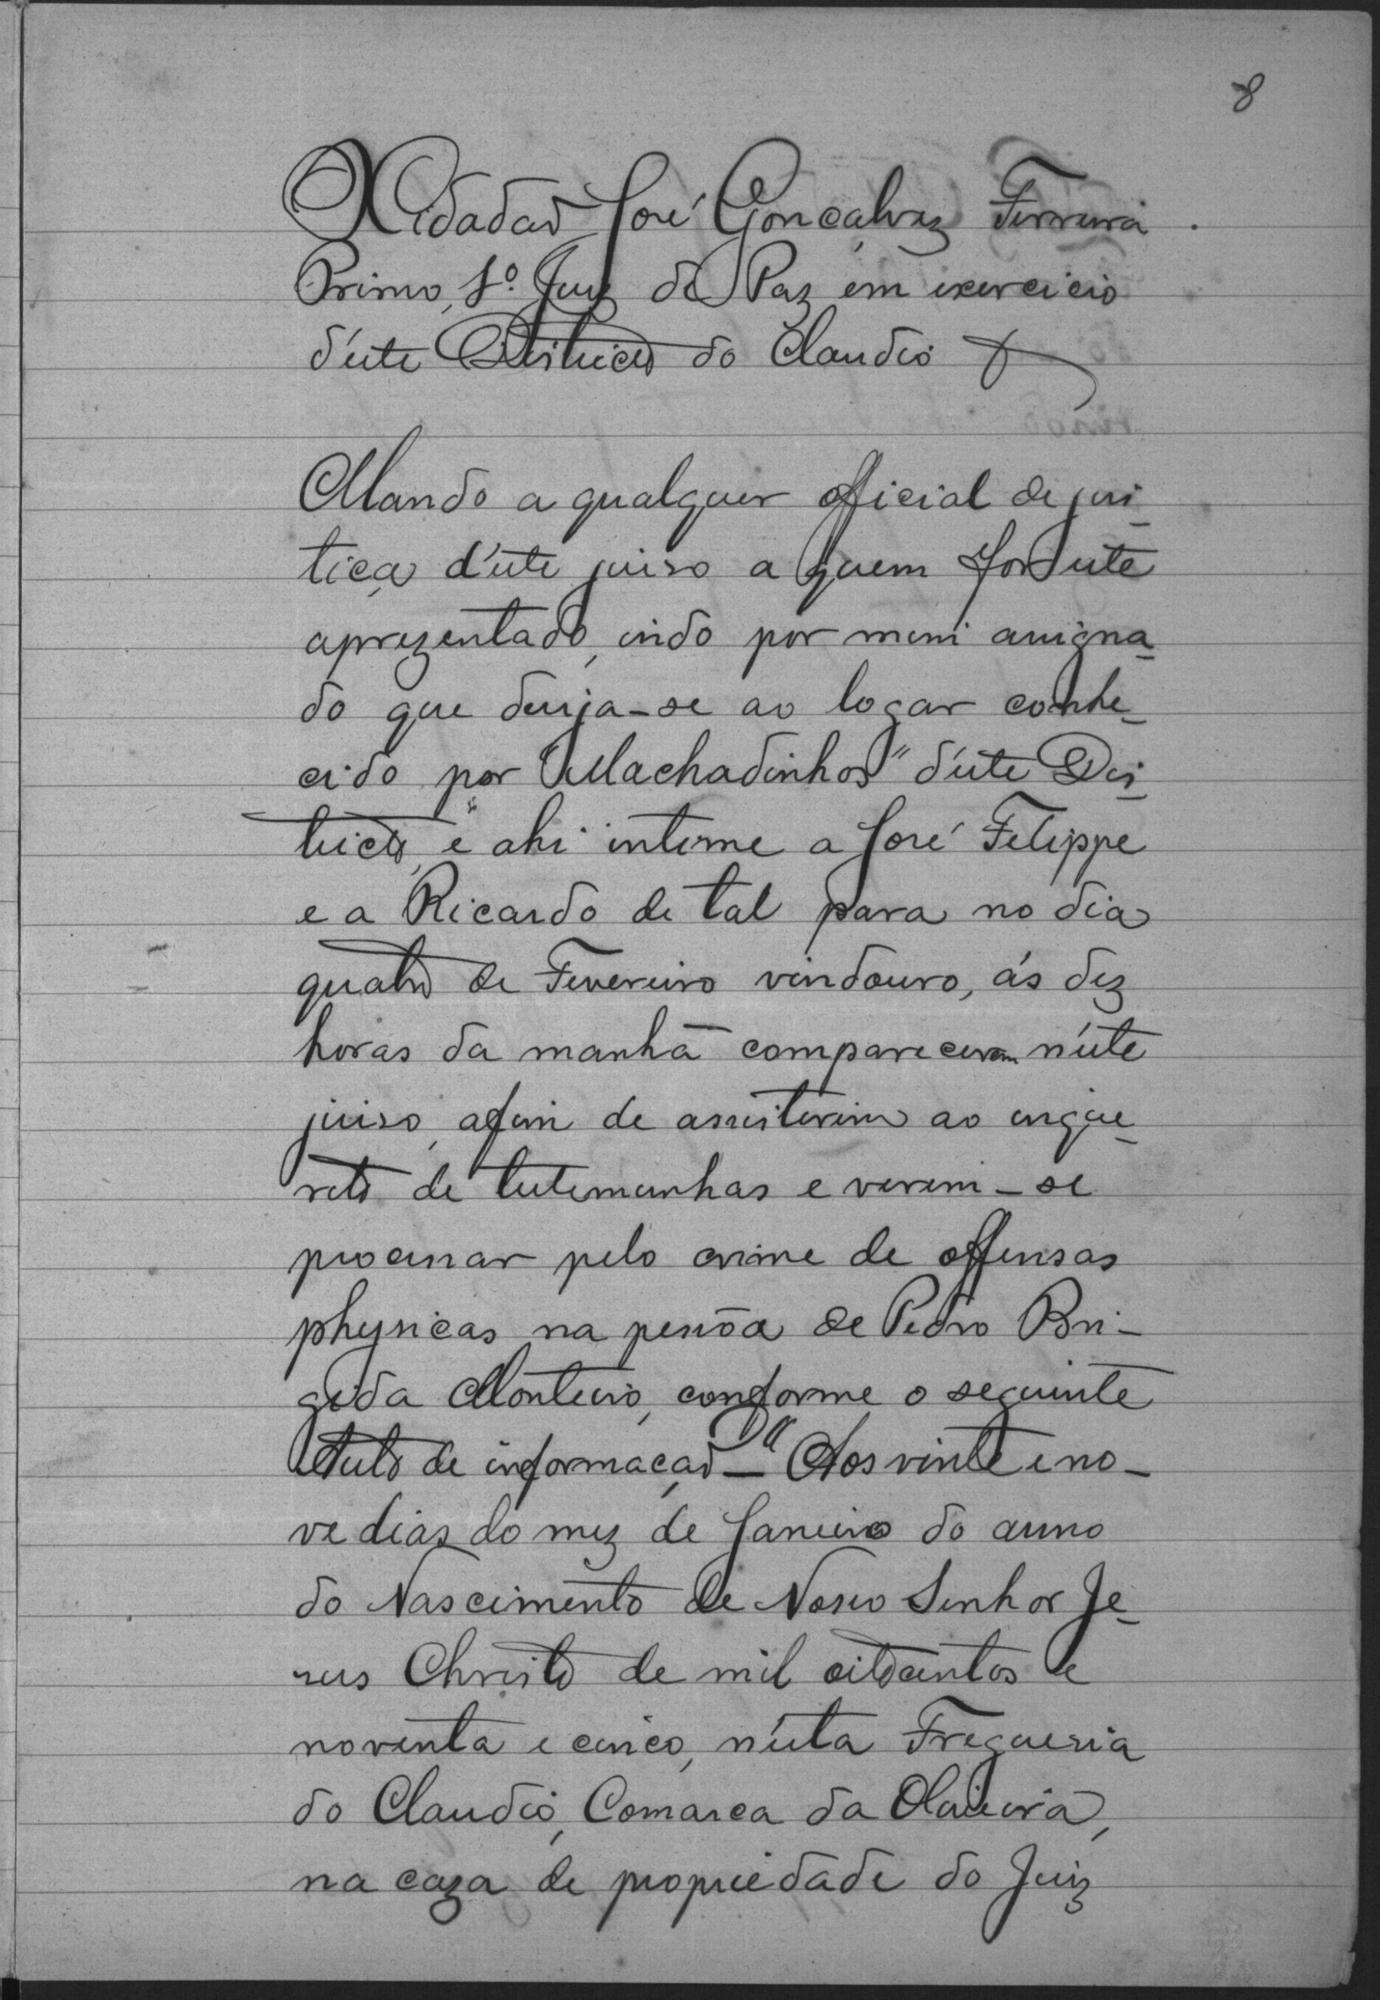 8
O Cidadaõ José Gonçalvez Ferreira
Primo, 1º. Juiz de Paz em exercicio
d'éste Districto do Claudio
Mando a qualquer official de jus-
tiça d'éste juiso a quem for éste
aprezentado, indo por mim assigna-
do que dirija-se ao logar conhe-
cido por "Machadinhos" d'éste Dis-
tricto, e ahi intime a José Felippe
e a Ricardo de tal para no dia
quatro de Fevereiro vindouro, ás dez
horas da manhã comparecerem n'éste
juiso, afim de assisterem ao inque-
rito de testemunhas e verem-se
processar pelo crime de offensas
physicas na pessôa de Pedro Bri-
gida Monteiro, conforme o seguinte
Auto de informaçaõ – "Aos vinte e no-
ve dias do mez de Janeiro do anno
do Nascimento de Nosso Senhor Je-
sus Christo de mil oitocentos e
noventa e cinco, n'ésta Freguesia
do Claudio, Comarca da Oliveira,
na caza de propriedade do Juiz